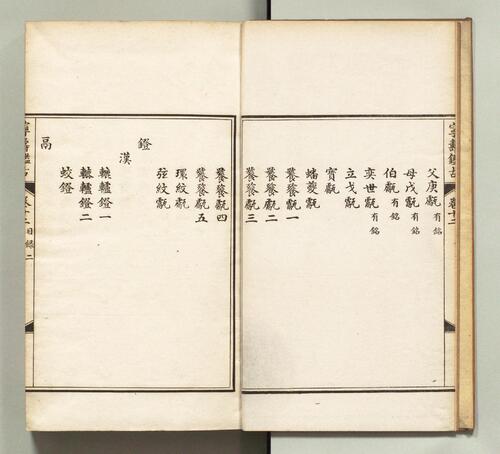 寧壽鑑古 卷十二
父庚甗 有銘
母戊甗 有銘
伯甗 有銘
奕世甗 有銘
立戈甗
寶甗
蟠夔甗
饕餮甗一
饕餮甗二
饕餮甗三
饕餮甗四
饕餮甗五
環紋甗
弦紋甗
鐙
漢
轆轤鐙一
轆轤鐙二
蛟鐙
鬲
寧壽鑑古 卷十二 目錄 二